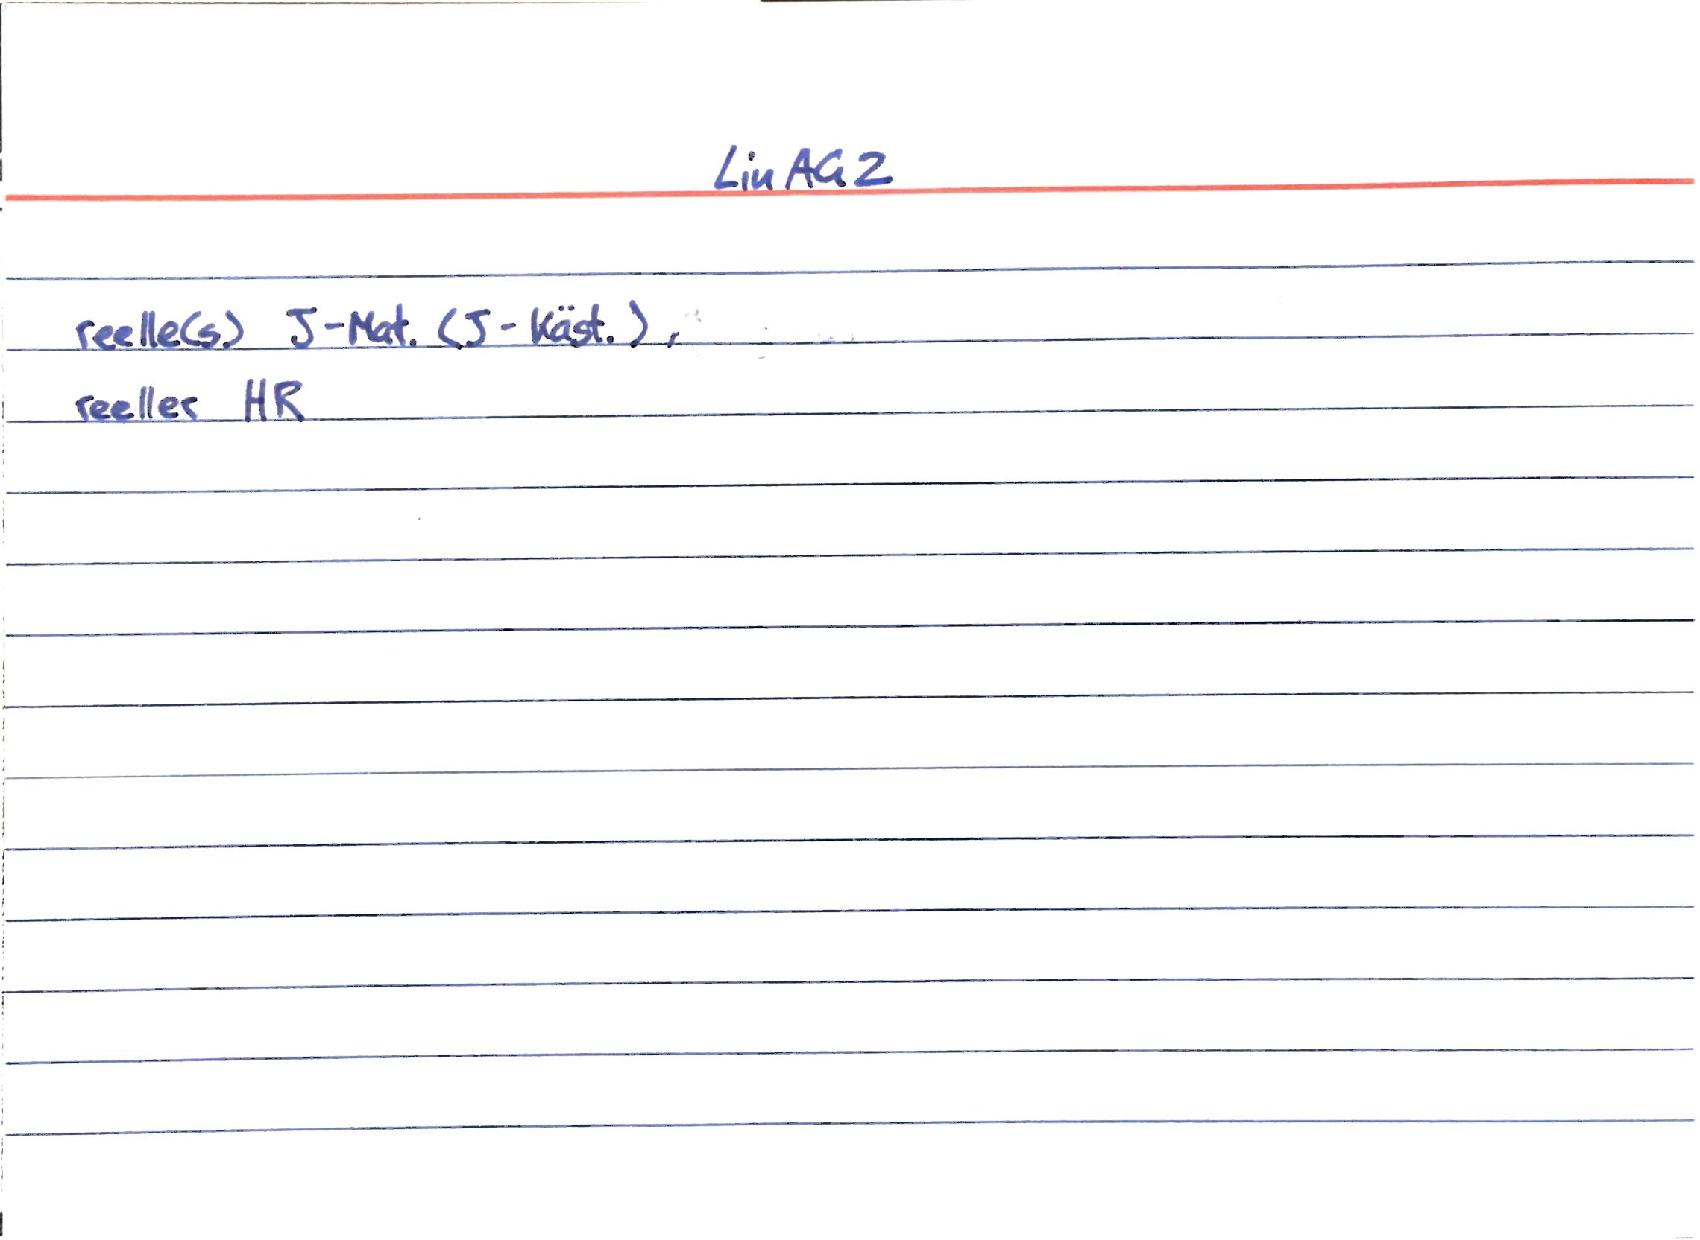 LinAG2
reelle(s) J-Mat. (J-Käst.),
reeller HR